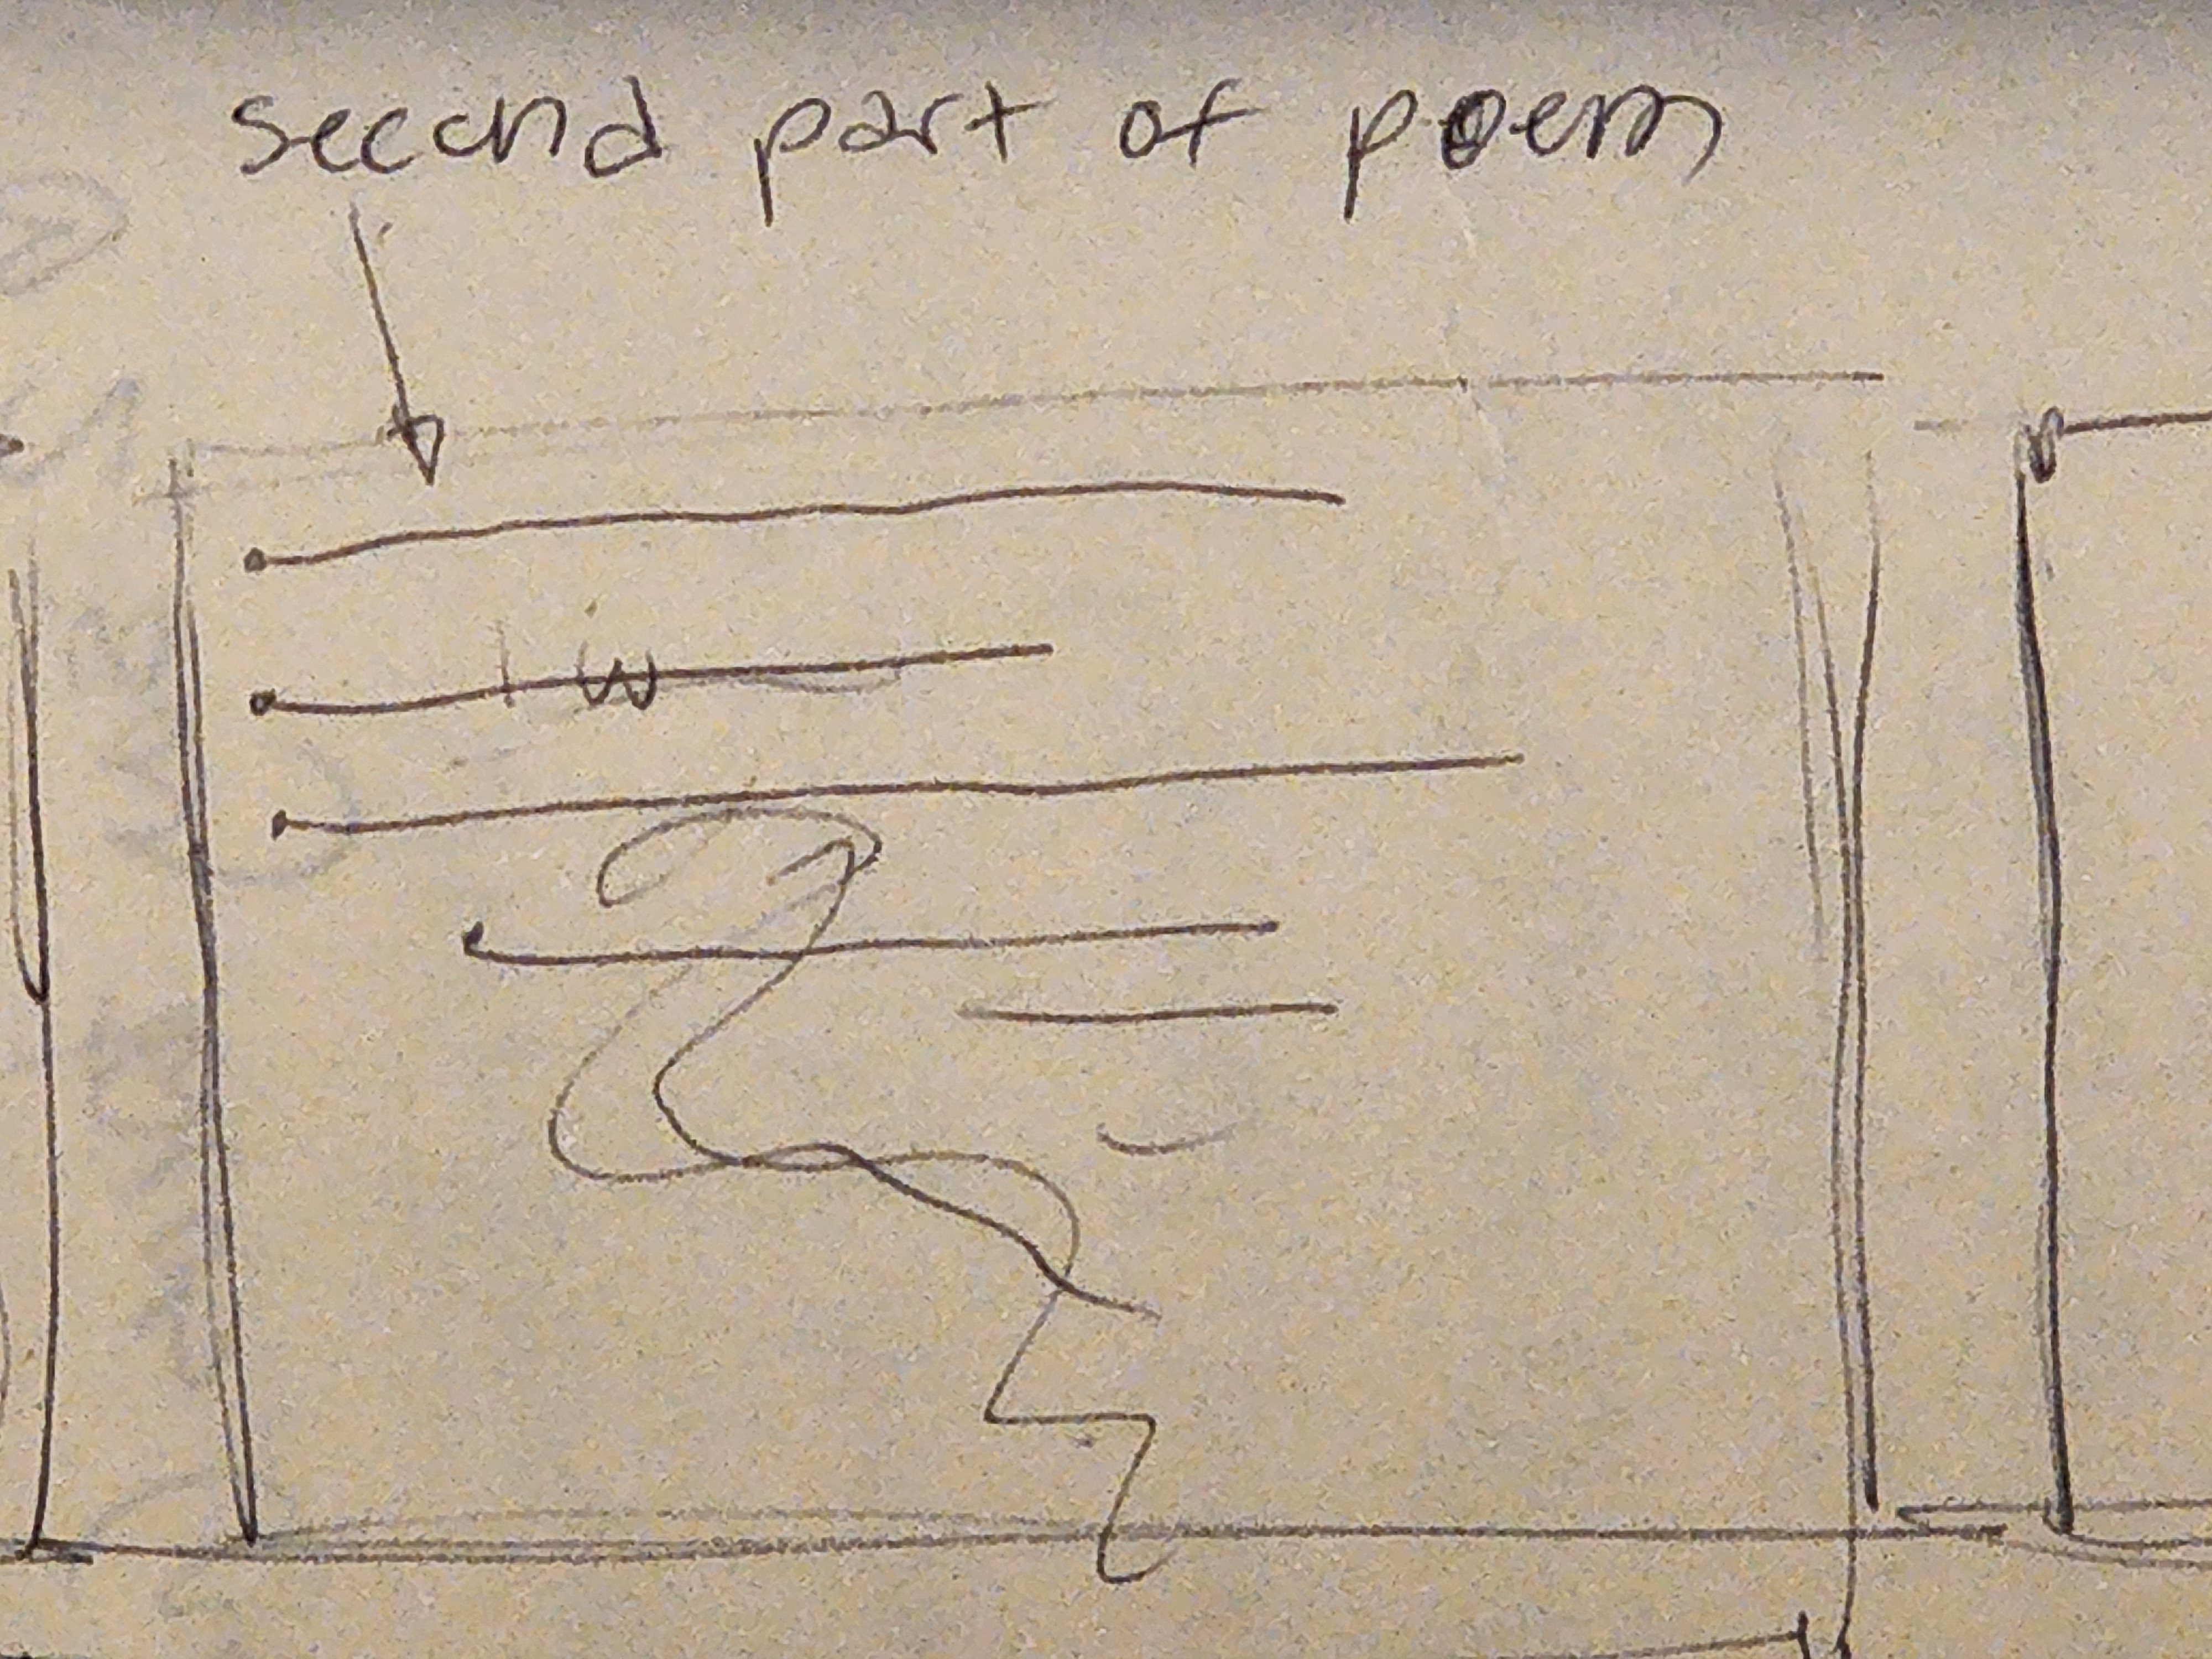 second part of poem